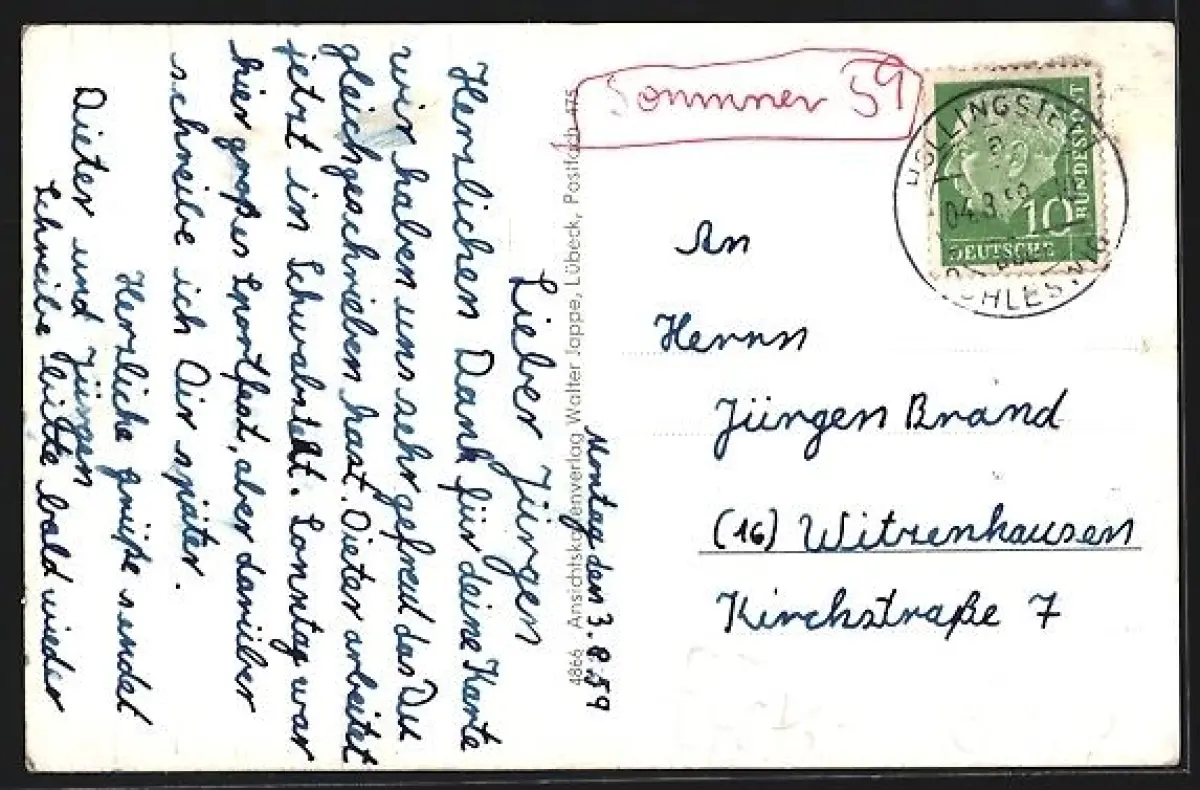 Montag den 3.8.59
Lieber Jürgen
Herzlichen Dank für deine Karte
wir haben uns sehr gefreut das Du
gleichgeschrieben hast. Dieter arbeitet
jetzt in Schwabstedt. Sonntag war
hier großes Sportfest, aber darüber
schreibe ich Dir später.
Herzliche grüße sendet
Dieter und Jürgen
Schreibe bitte bald wieder
4866 Ansichtskartenverlag Walter Jappe, Lübeck, Postfach 475
Sommer 59
DEUTSCHE
BUNDESPOST
10
An
Herrn
Jürgen Brand
(16) Witzenhausen
Kirchstraße 7